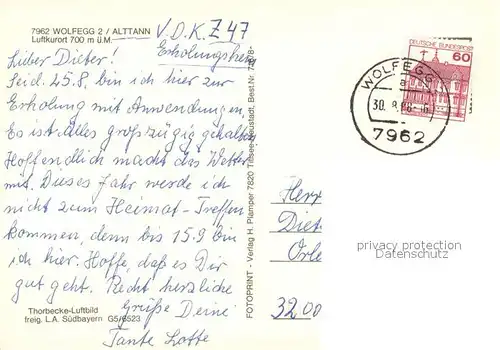 7962 WOLFEGG 2 / ALTTANN
Luftkurort 700 m ü.M.
V.d.K. Z 47
Erholungsheim
Lieber Dieter!
Seid 25.8. bin ich hier zur
Erholung mit Anwendungen.
Es ist Alles großzügig gehalten
Hoffendlich macht das Wetter
mit. Dieses Jahr werde ich
nicht zum Heimat-Treffen
kommen, denn bis 15.9 bin
ich hier. Hoffe, daß es Dir
gut geht. Recht herzliche
Grüße Deine
Tante Lotte
Thorbecke-Luftbild
freig. L.A. Südbayern G5/6523
FOTOPRINT - Verlag H. Plamper 7820 Titisee-Neustadt, Best.Nr.
DEUTSCHE BUNDESPOST
60
WOLFEGG
a
30.8.88
7962
Herr
Diet
Orle
3200
privacy protection
Datenschutz